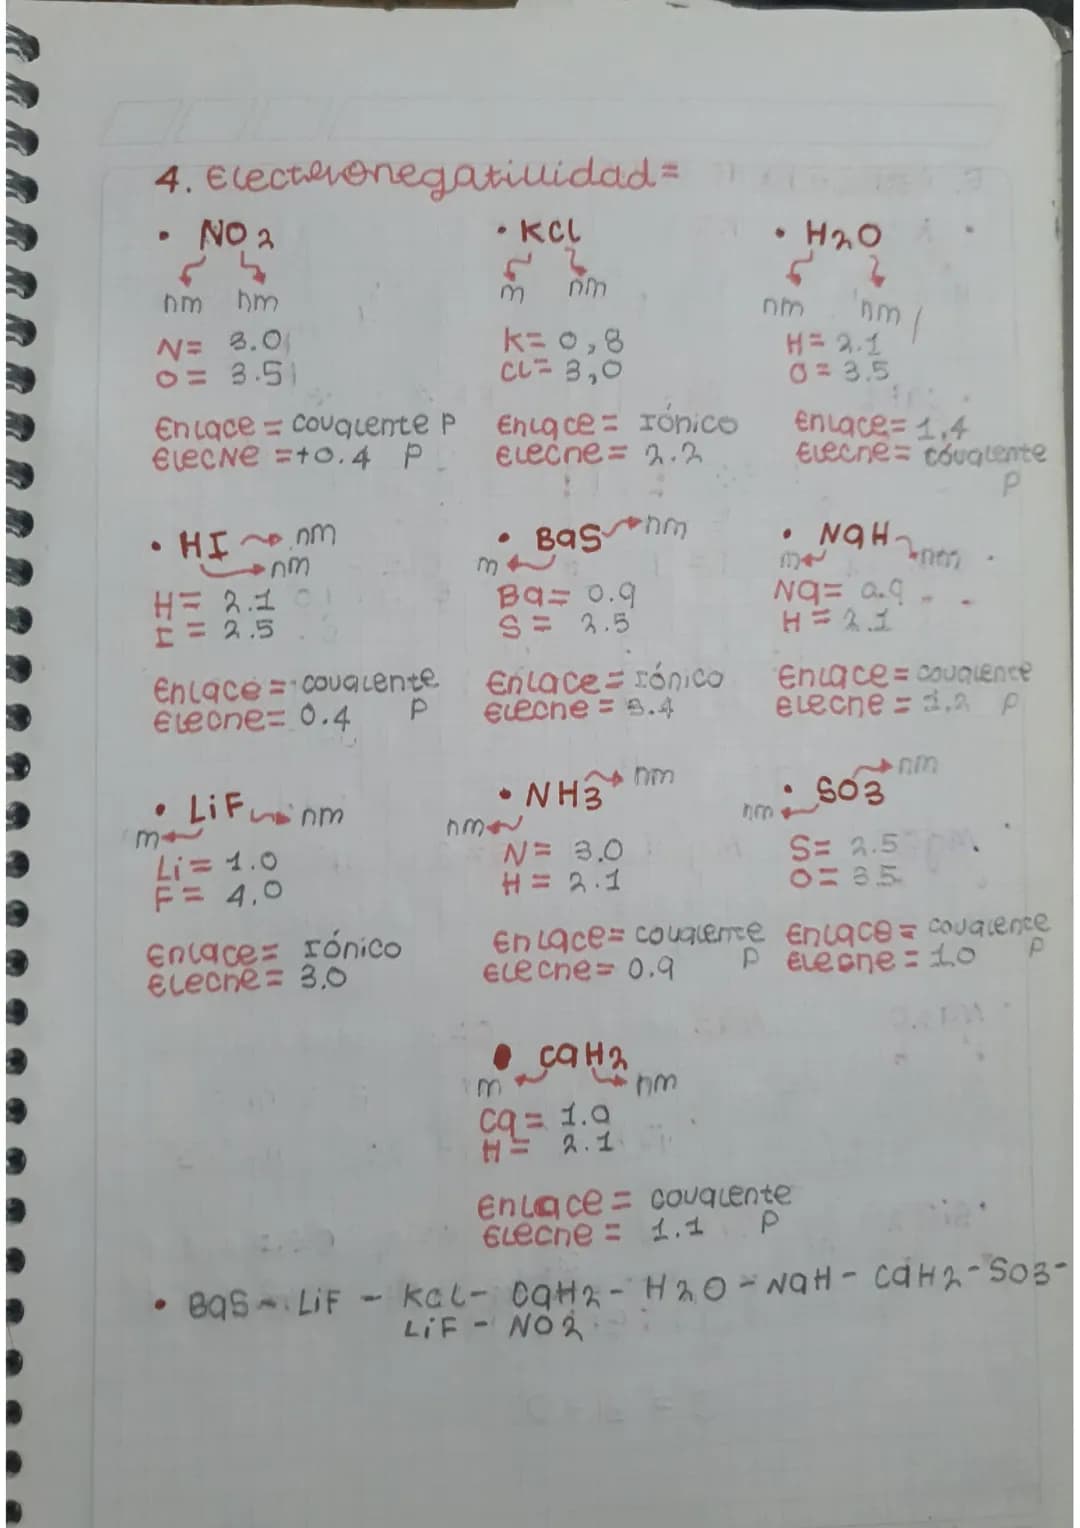 4. Electronegatividad=
• NO2
nm nm
N= 3.0
O= 3.5
Enlace = covalente P
ElecNe =+0.4 P
• KCl
m nm
K= 0,8
Cl= 3,0
Enlace= Iónico
Elecne= 2.2
• H2O
nm nm
H= 2.1
O= 3.5
Enlace= 1,4
Elecne= covalente
P
• HI nm
nm
H= 2.1
I= 2.5
Enlace= covalente
Elecne= 0.4 P
• BaS nm
m
Ba= 0.9
S= 2.5
Enlace= Iónico
Elecne=
• NaH
m nm
Na= 0.9
H= 2.1
Enlace= covalente
Elecne= 1.2 P
• LiF nm
m
Li= 1.0
F= 4.0
Enlace= Iónico
Elecne= 3.0
• NH3 nm
nm
N= 3.0
H= 2.1
Enlace= covalente
Elecne= 0.9 P
• SO3 nm
nm
S= 2.5
O= 3.5
Enlace= covalente
Elecne= 1.0 P
• CaH2
m nm
Ca= 1.0
H= 2.1
Enlace= covalente
Elecne= 1.1 P
• BaS - LiF - KCl - CaH2 - H2O - NaH - CaH2 - SO3 -
LiF - NO2